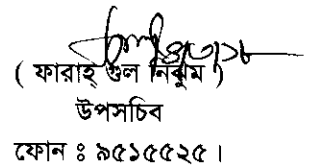 ( ফারাহ্ গুল নিঝুম )
উপসচিব
ফোন ঃ ৯৫১৫৫২৫ ।